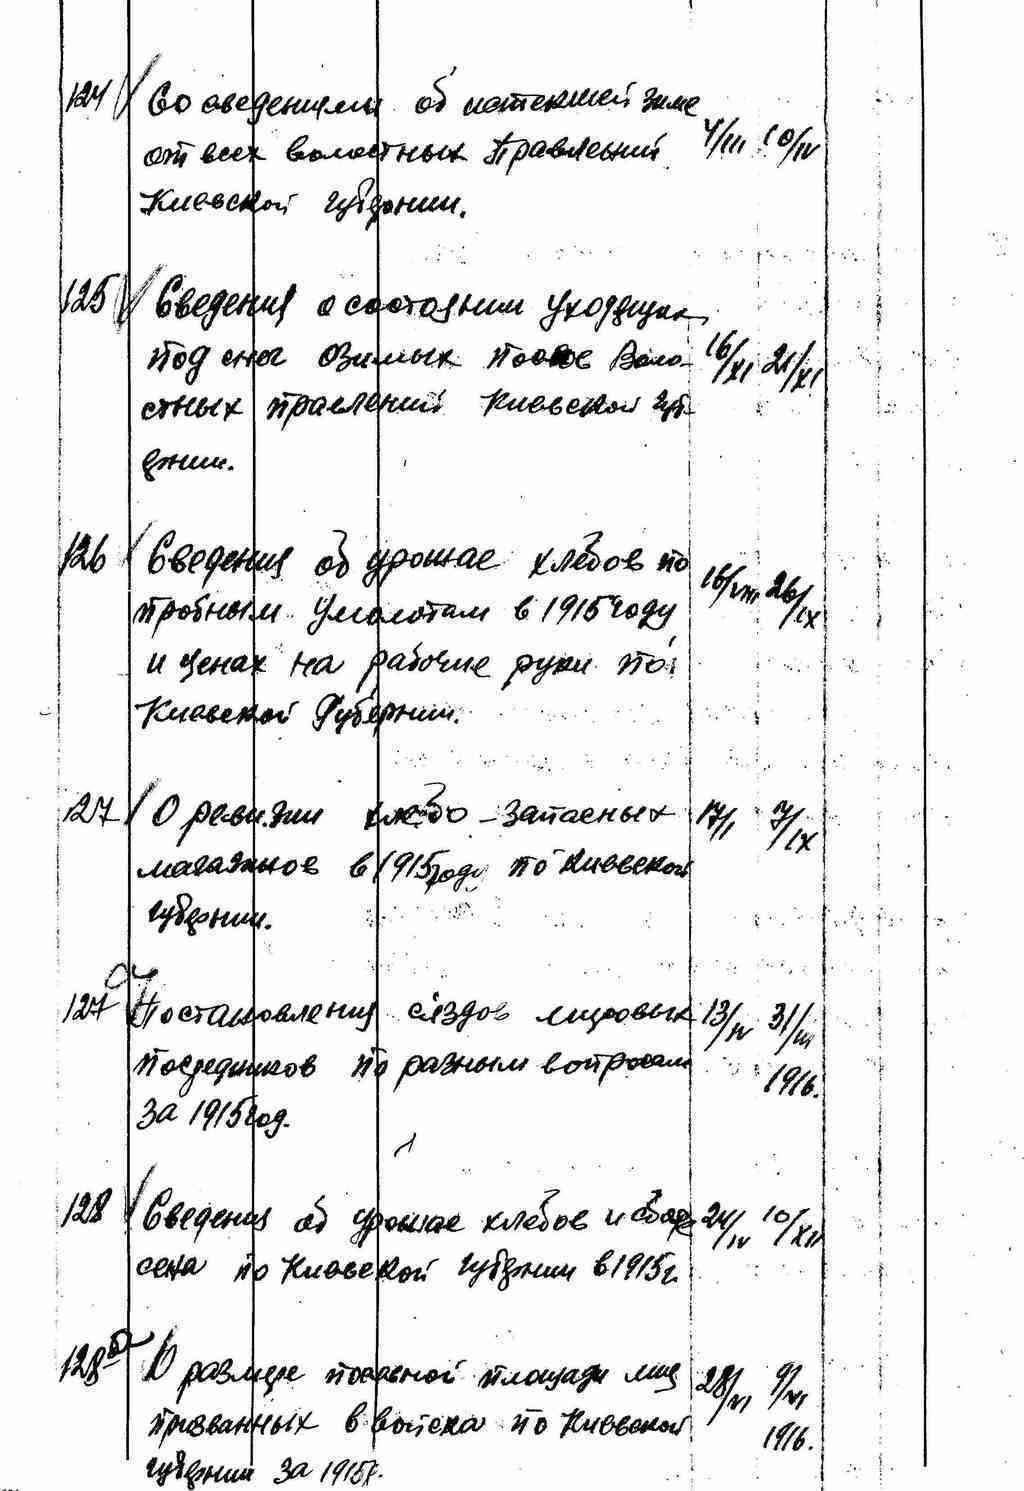 124 Со сведениями об истекшей зиме
от всех волостных Правлений 4/III 10/IV
Киевской губернии.
125 Сведения о состоянии уходящих
под снег озимых посевов Воло- 16/XI 21/XI
стных правлений Киевской губ-
ернии.
126 Сведения об урожае хлебов по
пробным умолотам в 1915 году 16/VIII 26/IX
и ценах на рабочие руки по
Киевской Губернии.
127 О ревизии хлебо-запасных 17/I 7/IX
магазинов в 1915 году по Киевской
губернии.
127а Постановления с'ездов мировых 13/IV 31/III
посредников по разным вопросам 1916.
за 1915 год.
128 Сведения об урожае хлебов и сборе 24/IV 10/XII
сена по Киевской губернии в 1915 г.
128а О размере посевной площади лиц 28/VI 9/VI
призванных в войска по Киевской 1916.
губернии за 1915 г.